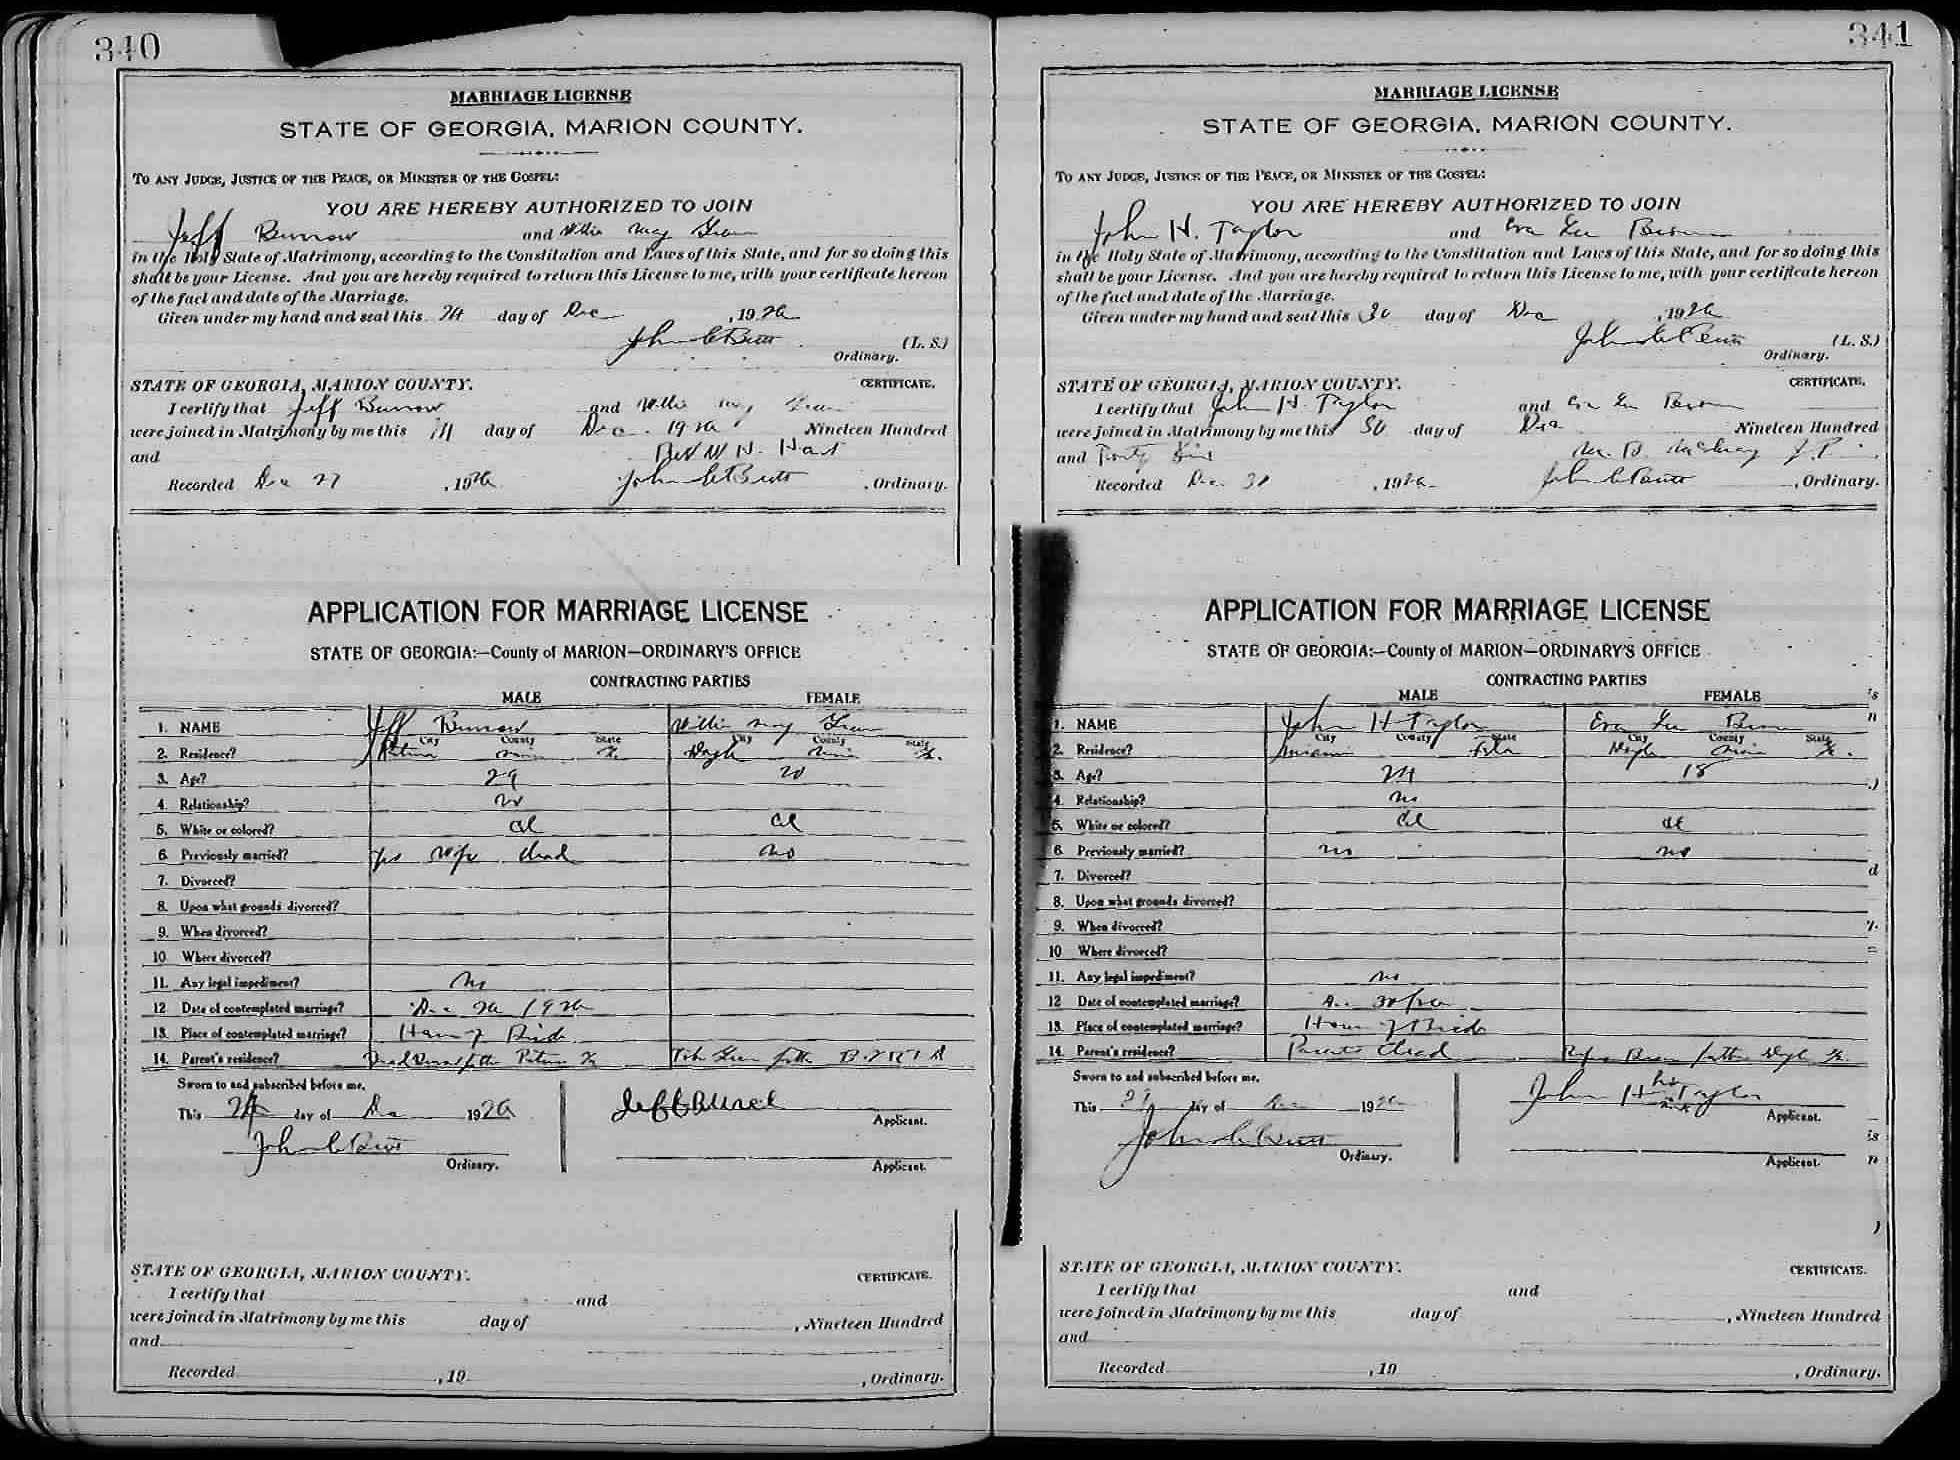 340
MARRIAGE LICENSE
STATE OF GEORGIA, MARION COUNTY.
TO ANY JUDGE, JUSTICE OF THE PEACE, OR MINISTER OF THE GOSPEL:
YOU ARE HEREBY AUTHORIZED TO JOIN
Jeff Burrow and Willie May
in the Holy State of Matrimony, according to the Constitution and Laws of this State, and for so doing this
shall be your License. And you are hereby required to return this License to me, with your certificate hereon
of the fact and date of the Marriage.
Given under my hand and seal this 24 day of Dec , 19
John C Butt (L. S.)
Ordinary.
STATE OF GEORGIA, MARION COUNTY. CERTIFICATE.
I certify that Jeff Burrow and Willie May
were joined in Matrimony by me this day of Dec. Nineteen Hundred
and Rev W H. Hart
Recorded Dec 27 , 19 John C Butt , Ordinary.
APPLICATION FOR MARRIAGE LICENSE
STATE OF GEORGIA:—County of MARION—ORDINARY'S OFFICE
CONTRACTING PARTIES
MALE FEMALE
1. NAME Jeff Burrow Willie May
City County State City County State
2. Residence?
3. Age? 29 20
4. Relationship? no
5. White or colored? Col Col
6. Previously married? yes wife dead no
7. Divorced?
8. Upon what grounds divorced?
9. When divorced?
10 Where divorced?
11. Any legal impediment? no
12 Date of contemplated marriage? Dec
13. Place of contemplated marriage? Home of Bride
14. Parent's residence?
Sworn to and subscribed before me.
This 24 day of Dec 19
Applicant.
John C Butt
Ordinary.
Applicant.
STATE OF GEORGIA, MARION COUNTY. CERTIFICATE.
I certify that and
were joined in Matrimony by me this day of , Nineteen Hundred
and
Recorded , 19 , Ordinary.
341
MARRIAGE LICENSE
STATE OF GEORGIA, MARION COUNTY.
TO ANY JUDGE, JUSTICE OF THE PEACE, OR MINISTER OF THE GOSPEL:
YOU ARE HEREBY AUTHORIZED TO JOIN
John H. Taylor and Eva Lee
in the Holy State of Matrimony, according to the Constitution and Laws of this State, and for so doing this
shall be your License. And you are hereby required to return this License to me, with your certificate hereon
of the fact and date of the Marriage.
Given under my hand and seal this 30 day of Dec , 19
John C Butt (L. S.)
Ordinary.
STATE OF GEORGIA, MARION COUNTY. CERTIFICATE.
I certify that John H. Taylor and Eva Lee
were joined in Matrimony by me this 30 day of Dec Nineteen Hundred
and
Recorded Dec. 30 , 19 John C Butt , Ordinary.
APPLICATION FOR MARRIAGE LICENSE
STATE OF GEORGIA:—County of MARION—ORDINARY'S OFFICE
CONTRACTING PARTIES
MALE FEMALE
1. NAME John H Taylor Eva Lee
City County State City County State
2. Residence? Miami Fla
3. Age? 24 18
4. Relationship? no
5. White or colored? Col Col
6. Previously married? no no
7. Divorced?
8. Upon what grounds divorced?
9. When divorced?
10 Where divorced?
11. Any legal impediment? no
12 Date of contemplated marriage?
13. Place of contemplated marriage? Home of Bride
14. Parent's residence? Parents dead
Sworn to and subscribed before me.
This day of Dec 19
John H his mark Taylor
Applicant.
John C Butt
Ordinary.
Applicant.
STATE OF GEORGIA, MARION COUNTY. CERTIFICATE.
I certify that and
were joined in Matrimony by me this day of , Nineteen Hundred
and
Recorded , 19 , Ordinary.